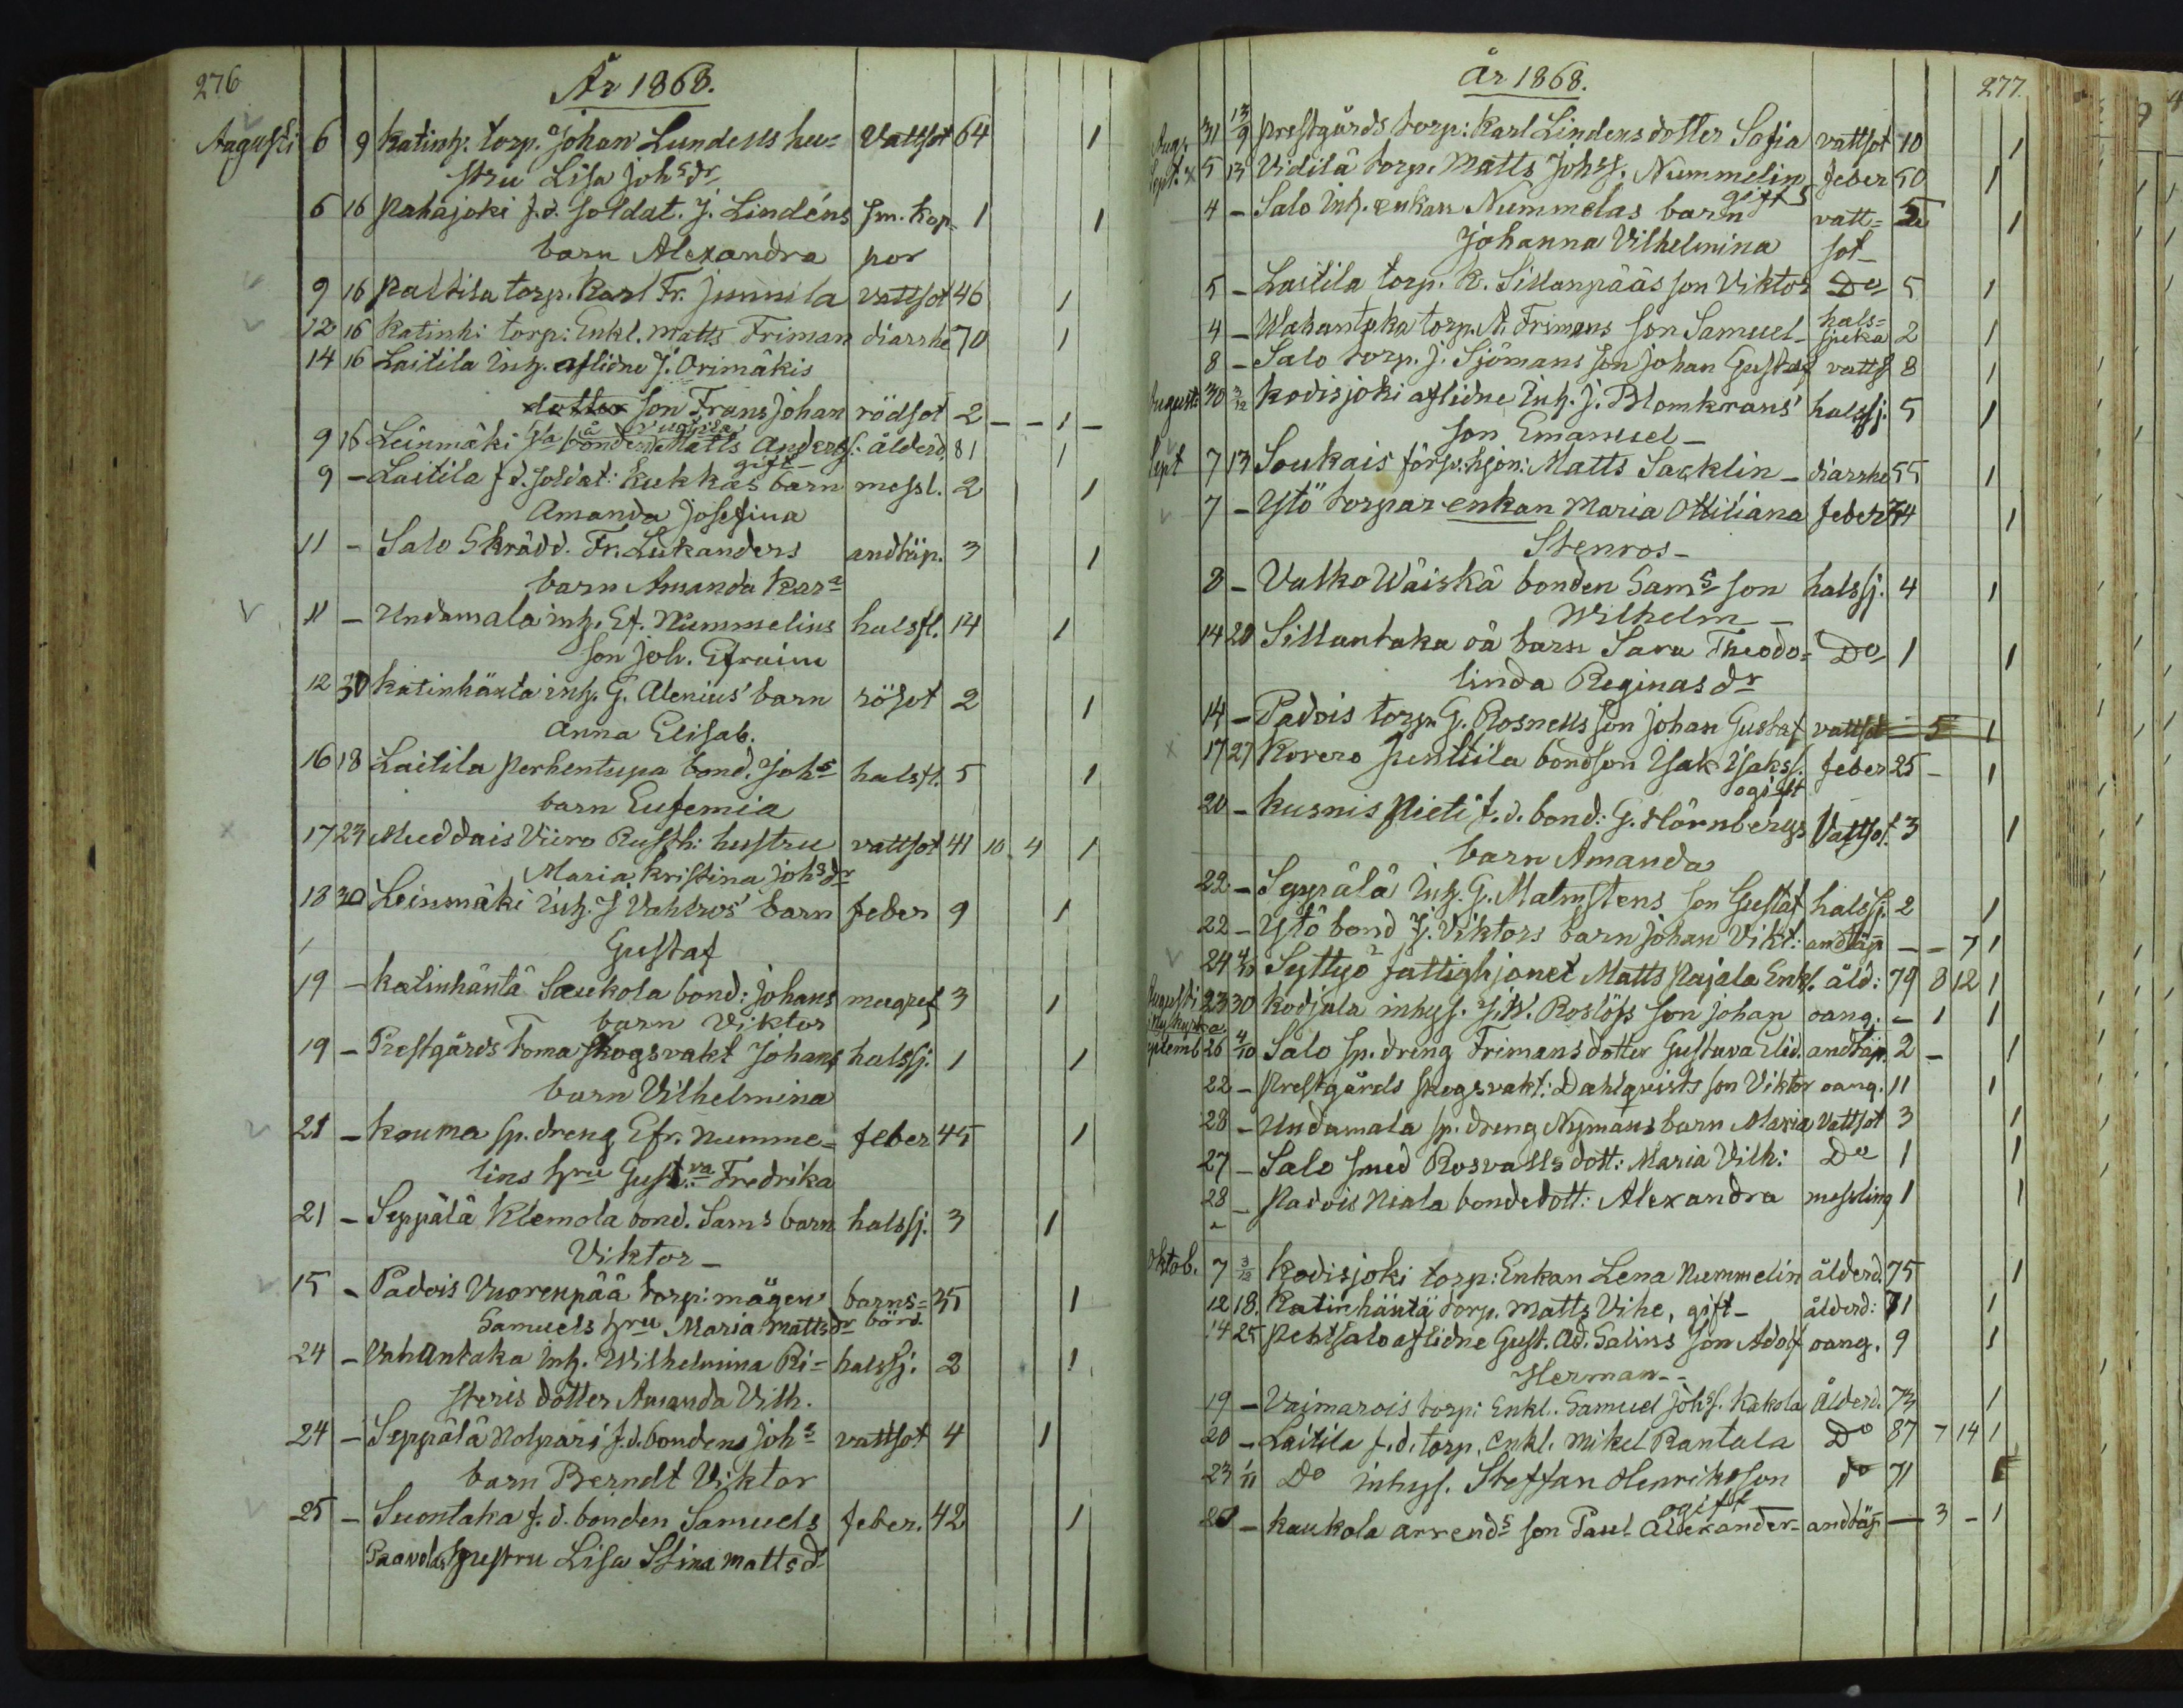 276
År 1868.
Augusti 6 9 Katinh. torp. Johan Lundells hu= Vattsot 64 1
stru Lisa Johsdr
6 16 Pahajoki f.d. soldat. J. Lindéns sm. kop= 1 1
barn Alexandra por
9 16 Pattila torp. Karl Fr. Junnila vattsot 46 1
12 16 Katinh: torp: Enkl. Matts Friman diarrhe 70 1
14 16 Laitila Inh. aflidne J. Orimäkis
dotter son Frans Johan rödsot 2 – – 1 –
9 16 Leinmäki bonden Matts Anderss: ålderd. 81 1
gift –
9 – Laitila f.d. soldat: Kukkas barn messl. 2 1
Amanda Josefina
11 – Salo Skrädd. Fr. Lukanders andtäp. 3 1
barn Amanda Kara
11 – Undamala inh. Ef. Nummelins halsfl. 14 1
son Joh. Efraim
12 30 Katinhänta inh. G. Alenius' barn rösot 2 1
Anna Elisab.
16 18 Laitila Perhentupa bond. Johs halsfl. 5 1
barn Eufemia
17 23 Muddais Viiro Rusth: hustru vattsot 41 10 4 1
Maria Kristina Johsdr
18 30 Leinmäki Inh. J Vahlros' barn feber 9 1
Gustaf
19 – Katinhäntä Saukola bond: Johans magref 3 1
barn Viktor
19 – Prestgårds Toma skogsvakt Johans halssj. 1 1
barn Vilhelmina
21 – Kouma sp. dreng Efr. Numme= feber 45 1
lins hru Gustva Fredrika
21 – Seppälä Klemola bond. Sams barn halssj. 3 1
Viktor –
15 – Padois Vuorenpää torp: mågen barns= 35 1
Samuels hru Maria Mattsdr börd.
24 – Vahantaka Inh. Wilhelmina Ri= halssj. 2 1
steris dotter Amanda Vilh.
24 – Seppälä Nolpari f.d. bondens Johs vattsot 4 1
barn Berndt Viktor
25 – Suontaka f.d. bonden Samuels feber. 42 1
Paavolas hustru Lisa Stina Mattsd
År 1868.
277.
Aug. 31 13/9 Prestgårds torp: Karl Lindens dotter Sofia vattsot 10 1
Sept. x 5 13 Vidilä torp. Matts Johss. Nummelin feber 50 1
gift
4 – Salo Inh. enkan Nummelas barn vatt= 5 1
Johanna Vilhelmina sot
5 – Laitila torp. K. Sillanpääs son Viktor Do 5 1
4 – Wahantaka torp. A. Frimans son Samuel – hals= 2 1
sjuka
8 – Salo torp. J. Sjömans son Johan Gustaf vatts 8 1
Augusti 30 3/12 Kodisjoki aflidne Inh. J. Blomkrans' halssj. 5 1
son Emanuel –
Sept 7 13 Soukais försv. hjon: Matts Sacklin – diarrhe 55 1
7 – Ytö torparenkan Maria Ottiliana feber 74 1
Stenros –
8 – Valko Wäiskä bonden Sams son halssj. 4 1
Wilhelm –
14 20 Sillantaka oä barn Sara Theodo= Do 1 1
linda Reginasdr
14 – Padois torp. G. Rosnells son Johan Gustaf vattsot 5 1
17 27 Korero Penttila bondson Isak Isakss. feber 25 – 1
ogift
20 – Kusnis Pieti f.d. bond: G. Hörnbergs Vattsot. 3 1
barn Amanda
22 – Seppälä Inh. G. Malmstens son Gustaf halssj. 2 1
22 – Ytö bond J. Viktors barn Johan Vikt: andtäp – – 7 1
24 4/10 Syttyö fattighjonet Matts Pajala Enkl. åld: 79 8 12 1
Augusti 23 30 Kodjala inhys. J.W. Roslöfs son Johan oang. – 1 1
Septemb 26 4/10 Salo sp. dreng Frimans dotter Gustava Elis. andtäp. 2 – 1
22 – Prestgårds skogsvakt: Dahlqvists son Viktor oang. 11 1
28 – Undamala sp. dreng Nymans barn Maria Vattsot 3 1
27 – Salo smed Rosvalls dott: Maria Vilh: Do 1 1
28 – Padois Niala bondedott: Alexandra messling 1 1
Oktob. 7 3/12 Kodisjoki torp: Enkan Lena Nummelin ålderd. 75 1
12 18. Katinhäntä torp. Matts Vihe, gift – ålderd: 71 1
14 25 Pehtsalo aflidne Gust. Ad. Salins son Adolf oang. 9 1
Herman – –
19 – Vaimarois torp: Enkl. Samuel Johss. Kakola Ålderd. 73 1
20 – Laitila f.d. torp. Enkl. Mikel Rantala Do 87 7 14 1
23 1/11 Do inhys. Steffan Henriksson do 71 1
ogift
20 – Kaukola arrends son Paul Alexander – andtäp – 3 – 1